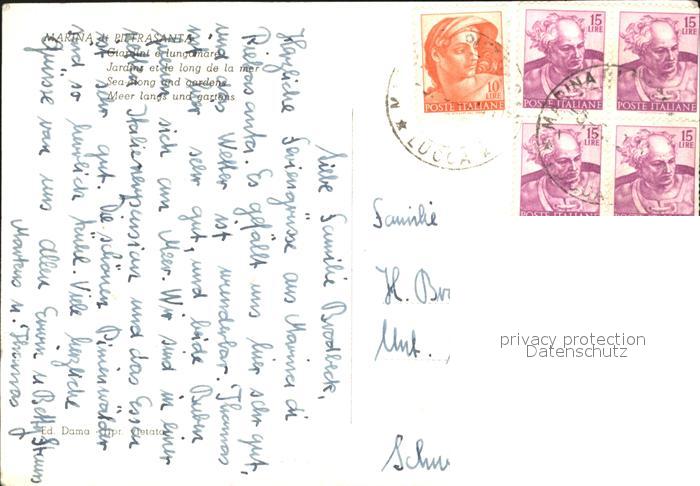 MARINA di PIETRASANTA
Giardini e lungomare
Jardins et le long de la mer
Sea-along and gardens
Meer langs und gartens
Liebe Familie Brodbeck,
Herzliche Feriengrüsse aus Marina di
Pietrasanta. Es gefällt uns hier sehr gut,
und das Wetter ist wunderbar. Thomas
sehr gut, und beide Buben
sich am Meer. Wir sind in einer
Italienerpension und das Essen
ist sehr gut. Die schönen Pinienwälder
sind so herrlich kühl. Viele herzliche
Grüsse von uns allen Erwin u. Betty
Markus u. Thomas
Ed. Dama
10
LIRE
POSTE ITALIANE
15
LIRE
POSTE ITALIANE
15
LIRE
POSTE ITALIANE
15
LIRE
POSTE ITALIANE
15
LIRE
POSTE ITALIANE
LUCCA
MARINA
Familie
H.
privacy protection
Datenschutz